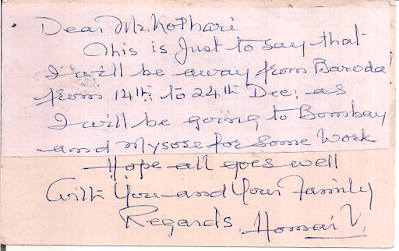 Dear Mr. Kothari
This is Just to say that
I will be away from Baroda
from 14th to 24th Dec; as
I will be going to Bombay
and Mysose for some Work
Hope all goes well
with You and Your Family
Regards. Homai V.